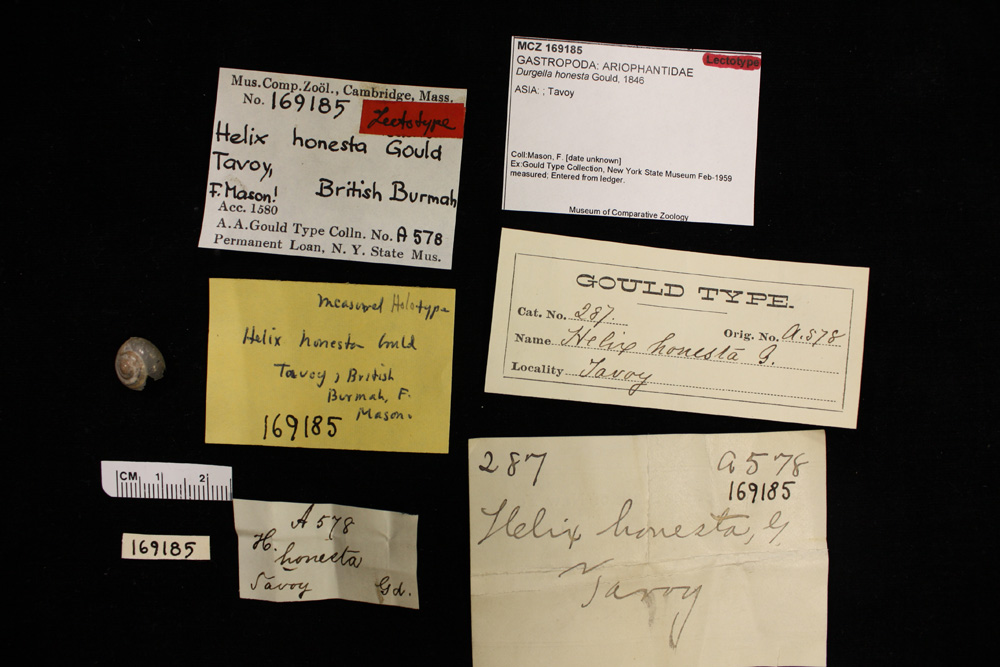 Mus.Comp.Zoöl., Cambridge, Mass.
No. 169185
Lectotype
Helix honesta Gould
Tavoy,
British Burmah
F. Mason!
Acc. 1580
A.A.Gould Type Colln. No. A 578
Permanent Loan, N. Y. State Mus.
MCZ 169185
Lectotype
GASTROPODA: ARIOPHANTIDAE
Durgella honesta Gould, 1846
ASIA: ; Tavoy
Coll:Mason, F. [date unknown]
Ex:Gould Type Collection, New York State Museum Feb-1959
measured; Entered from ledger.
Museum of Comparative Zoology
measured Holotype
Helix honesta Gould
Tavoy, British
Burmah, F.
Mason.
169185
GOULD TYPE.
Cat. No. 287.
Orig. No. A.578
Name Helix honesta G.
Locality Tavoy
CM 1 2
169185
A 578
H. honesta
Tavoy Gd.
287 A 578
169185
Helix honesta, G
Tavoy